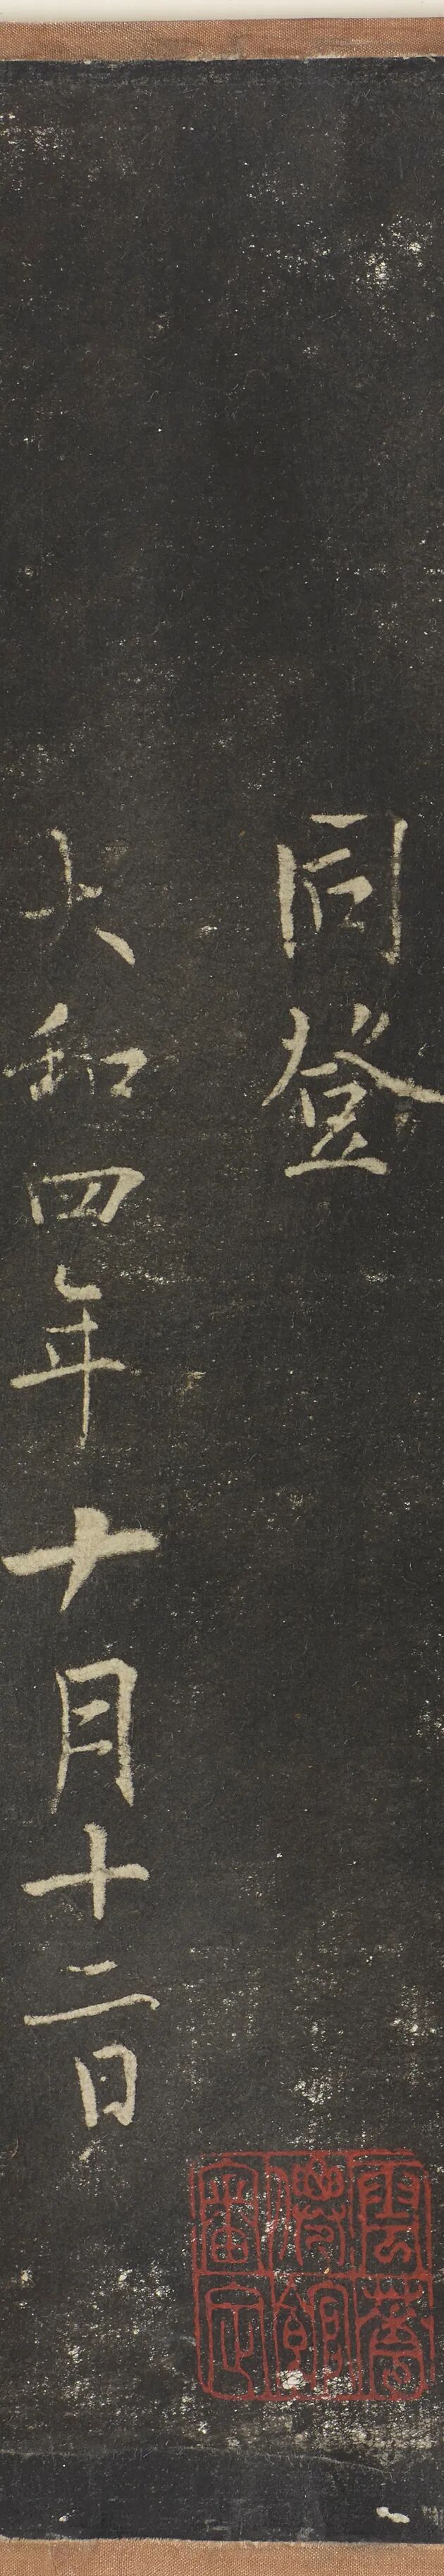 同登
大和四年十月十二日